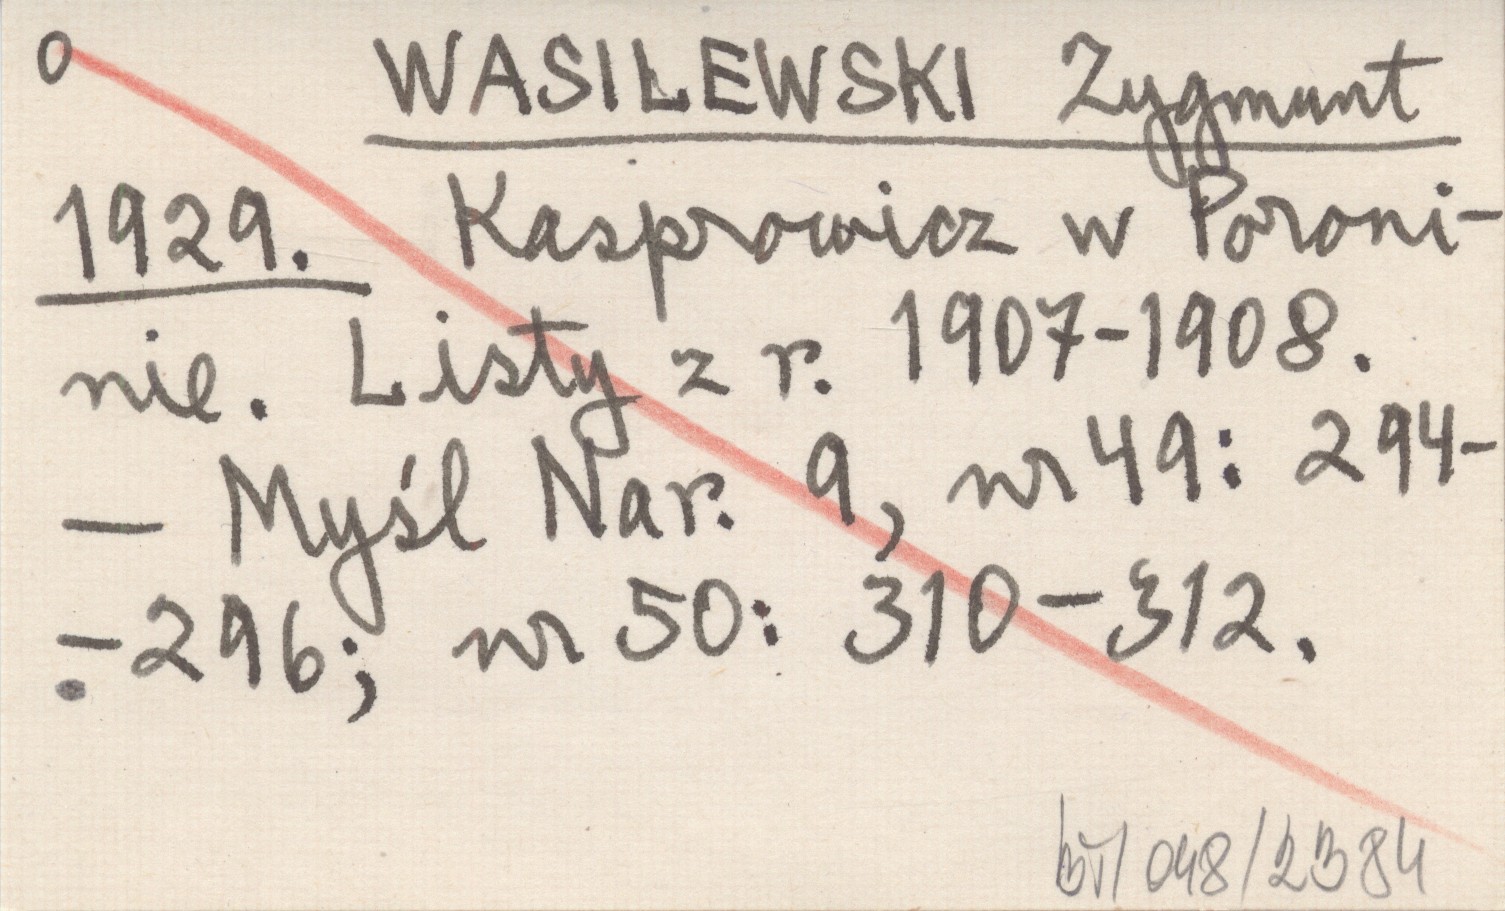 o WASILEWSKI Zygmunt
1929. Kasprowicz w Poroni-
nie. Listy z r. 1907-1908.
— Myśl Nar. 9, nr 49: 294-
-296; nr 50: 310-312.
BT/048/2384